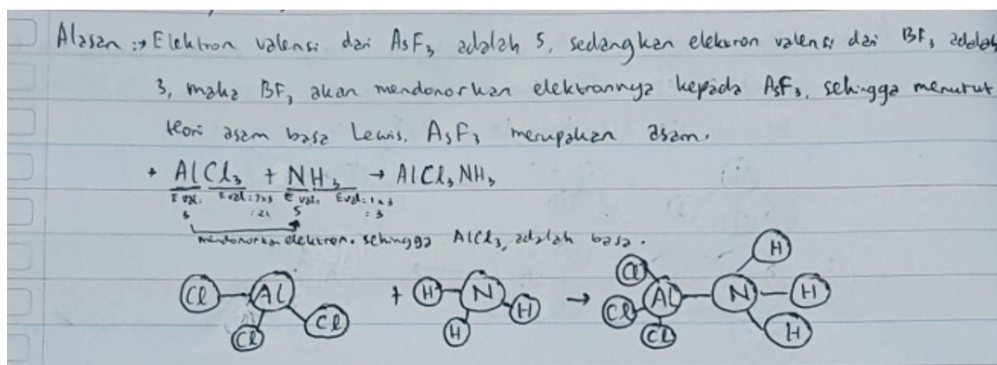 Alasan :→ Elektron valensi dari AsF₃ adalah 5, sedangkan elektron valensi dari BF₃ adalah
3, maka BF₃ akan mendonorkan elektronnya kepada AsF₃, sehingga menurut
teori asam basa Lewis, AsF₃ merupakan asam.
+ AlCl₃ + NH₃ → AlCl₃NH₃
E val: E val: 7x3 E val: E val: 1x3
3 : 21 5 : 3
mendonorkan elektron. sehingga AlCl₃, adalah basa.
Cl Al Cl Cl + H N H H → Cl Cl Cl Al N H H H